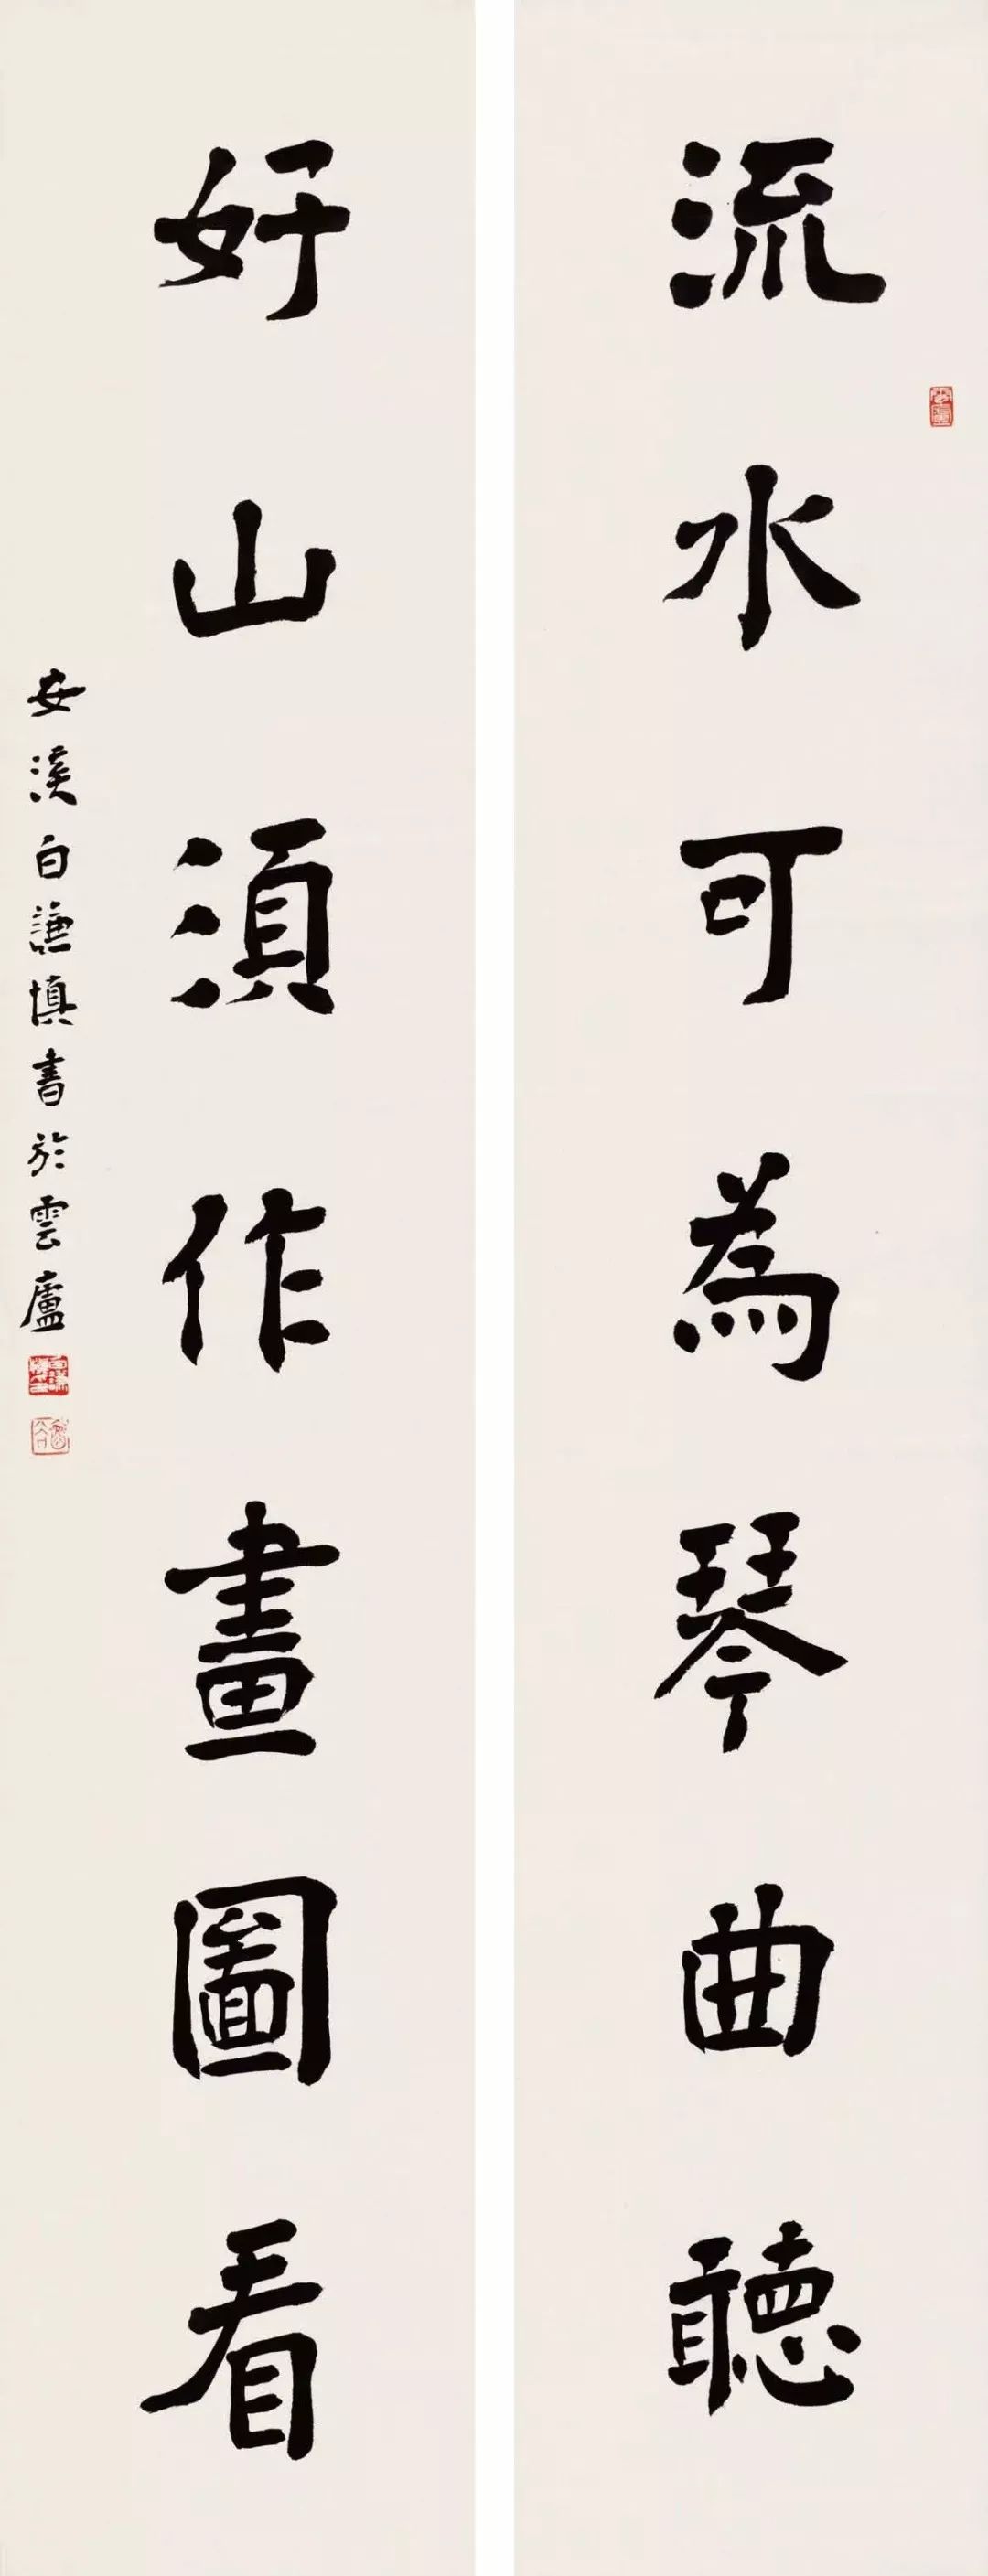 流水可為琴曲聽
好山須作畫圖看
安溪白謙慎書於雲廬